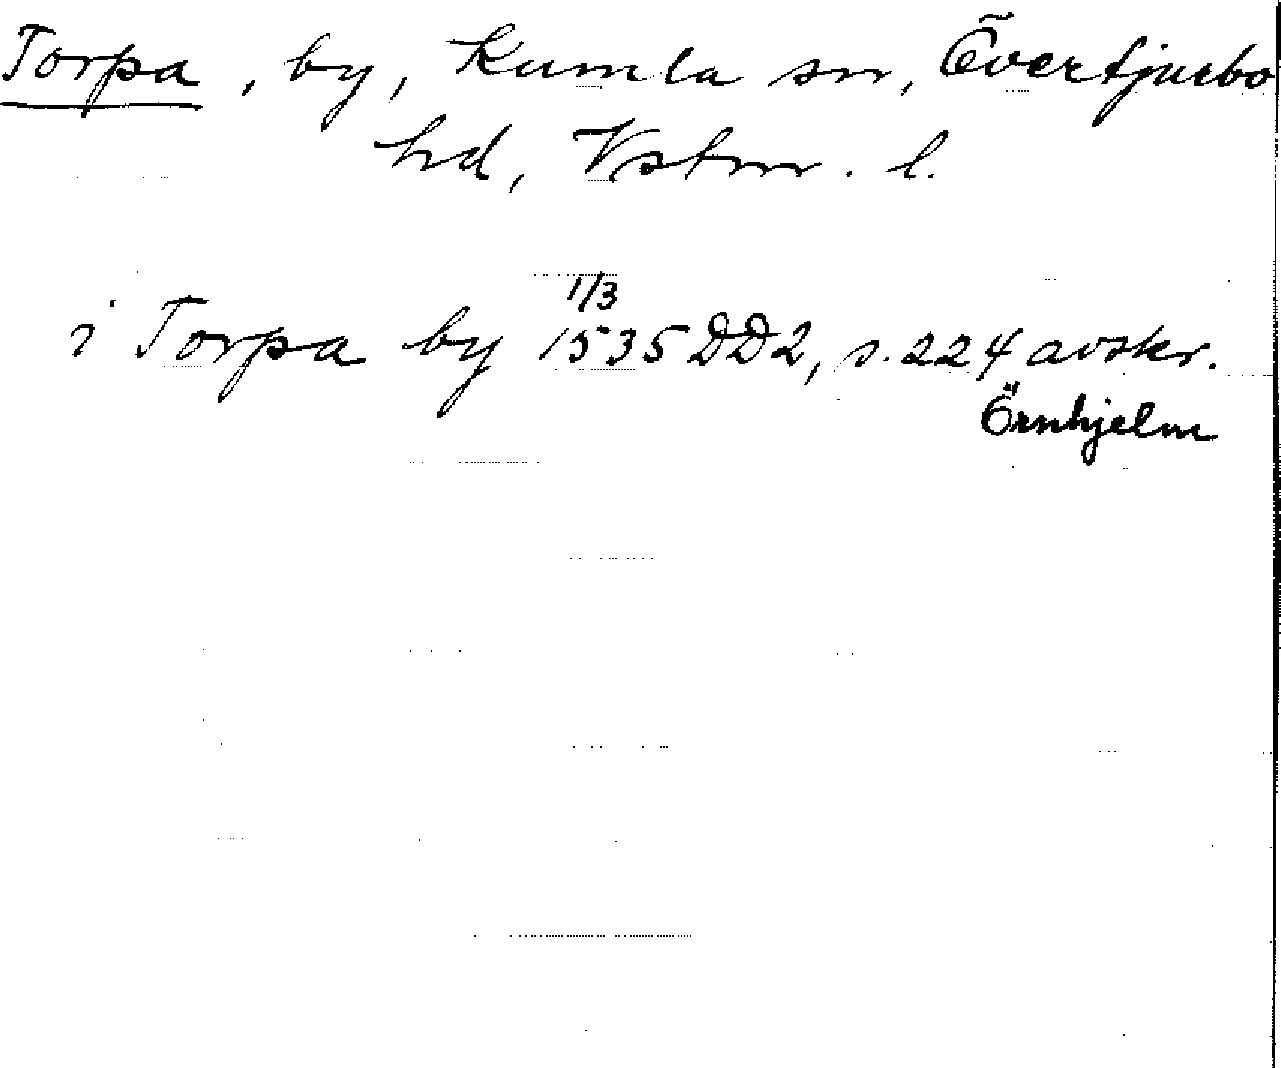 Torpa, by, Kumla sn, Övertjurbo
hd, Vstm. l.
i Torpa by 1/3 1535 DD2, s. 224 avskr.
Örnhjelm